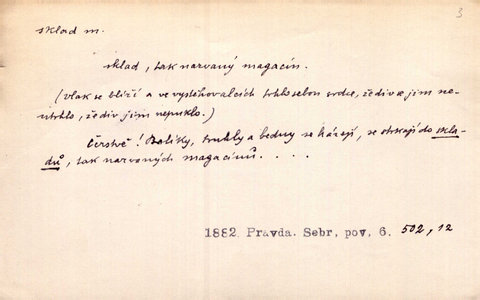 3
sklad m.
sklad, tak narvaný magacín.
(vlak se blíží a ve vystěhovalcích trhlo sebou srdce, že div se jim ne-
utrhlo, že div jim nepuklo.)
Čerstvě! Balíky, truhly a bedny se házejí, se strkají do skla-
dů, tak narvaných magacínů. . . .
1882 Pravda. Sebr. pov. 6. 502, 12